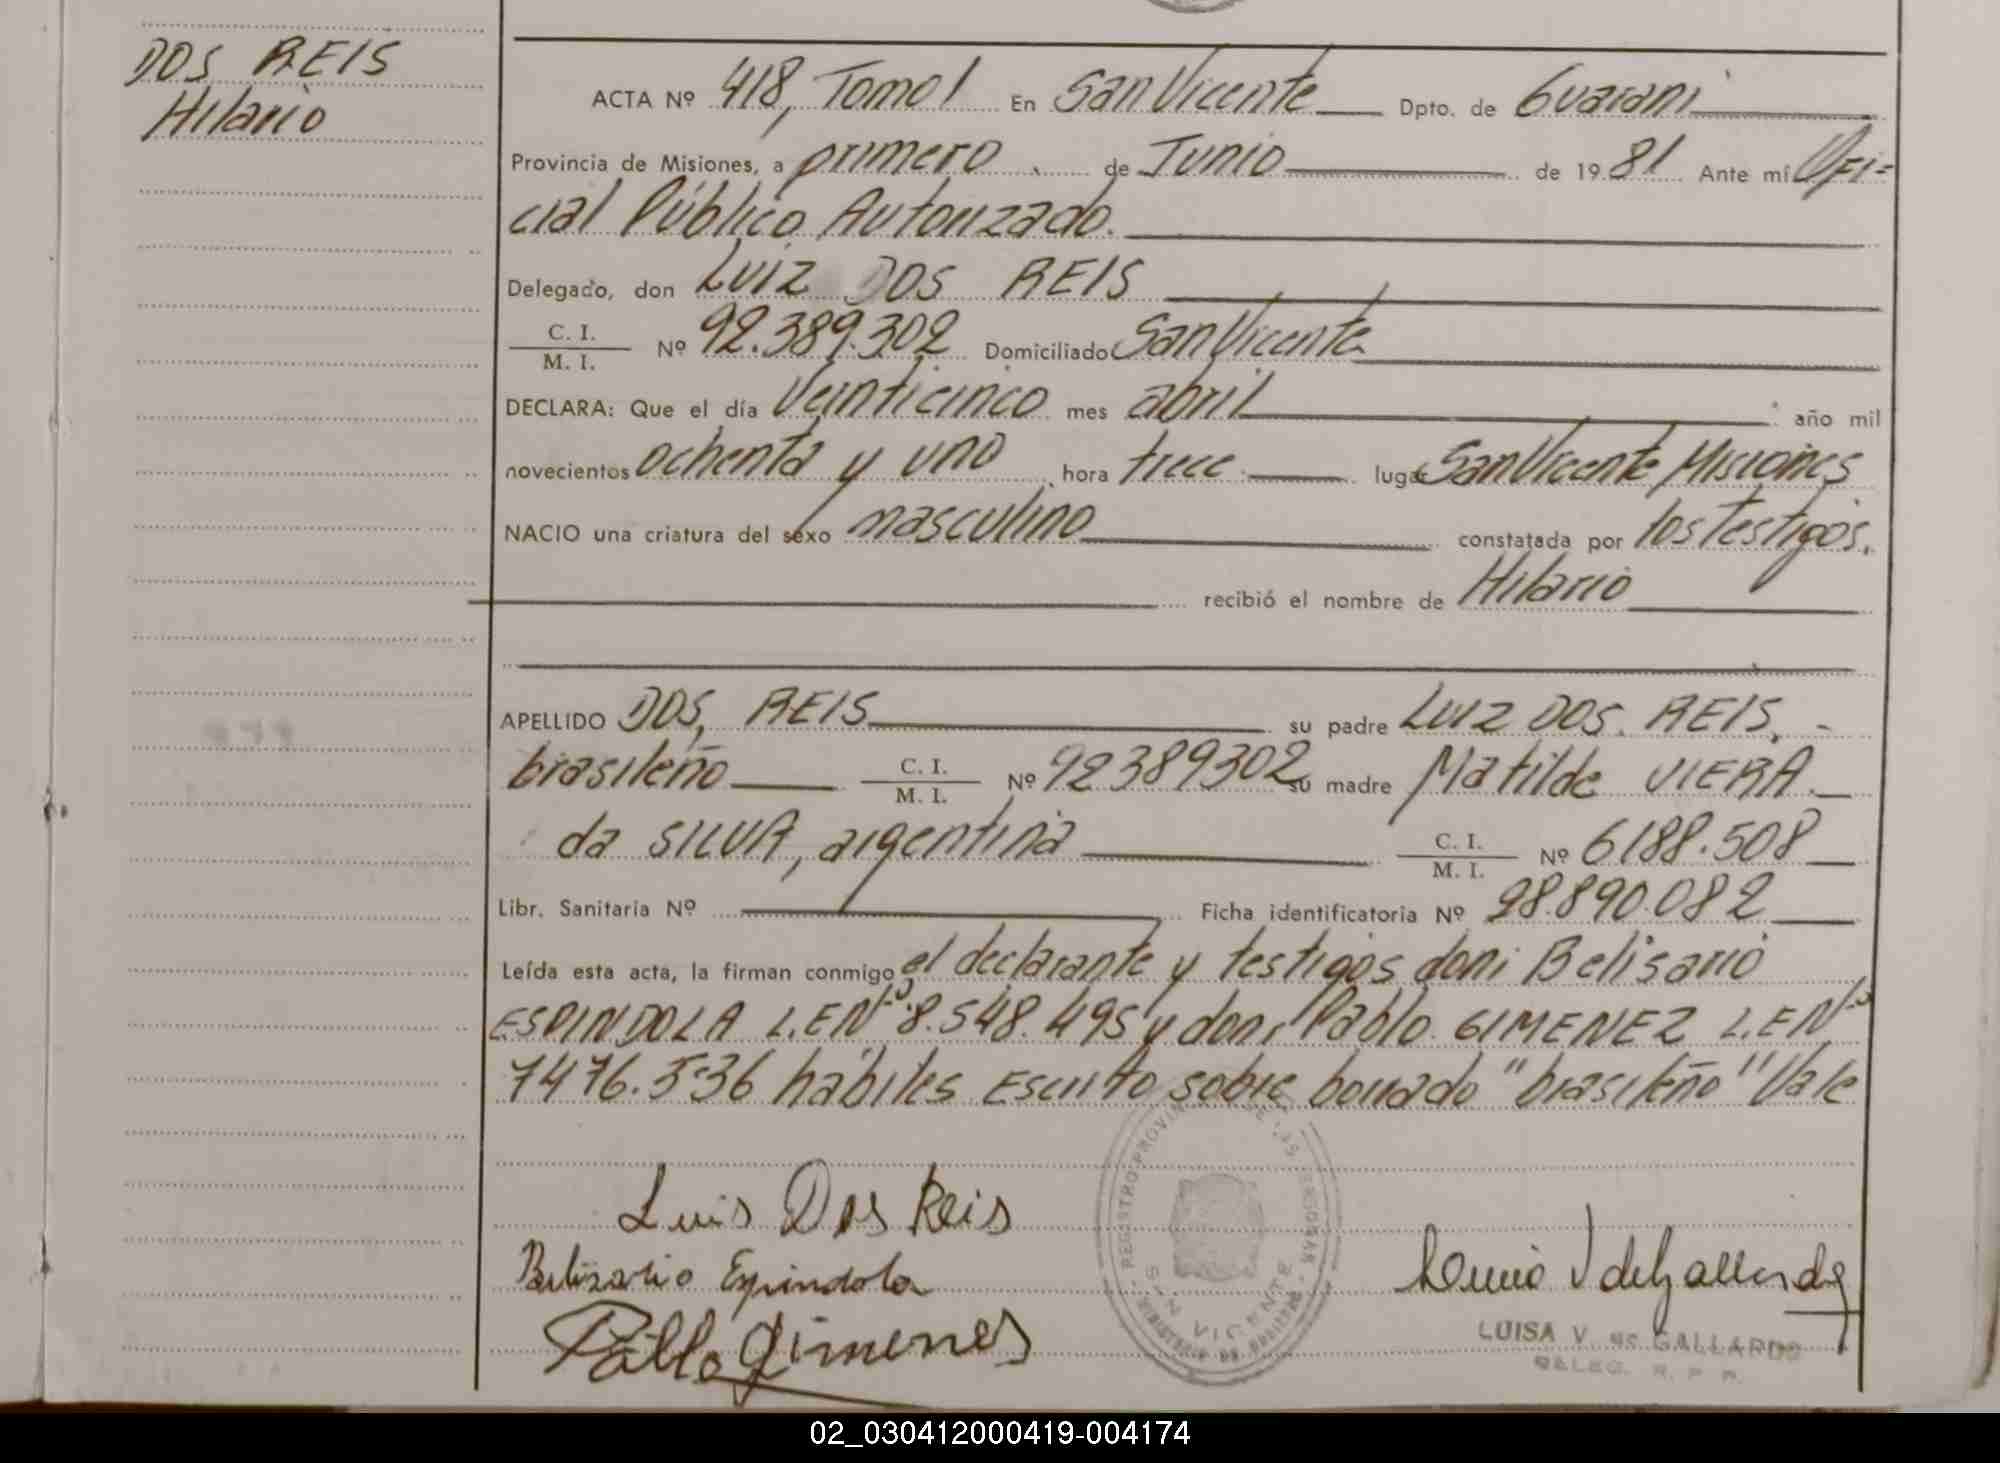 DOS REIS
Hilario
ACTA Nº 418, Tomo I En San Vicente Dpto. de Guarani
Provincia de Misiones, a primero de Junio de 1981 Ante mí Ofi=
cial Público Autorizado.
Delegado, don LUIZ DOS REIS
C. I.
M. I. Nº 92.389.302 Domiciliado San Vicente
DECLARA: Que el día Veinticinco mes abril año mil
novecientos ochenta y uno hora trece lugar San Vicente Misiones
NACIO una criatura del sexo masculino constatada por los Testigos.
recibió el nombre de Hilario
APELLIDO DOS, REIS su padre LUIZ DOS. REIS.
brasileño C. I. M. I. Nº 92389302 su madre Matilde VIERA
da SILVA, argentina C. I. M. I. Nº 6188.508
Libr. Sanitaria Nº Ficha identificatoria Nº 28.890.082
Leída esta acta, la firman conmigo el declarante y testigos don: Belisario
ESPINDOLA L.E Nº 8.548.495 y don: Pablo GIMENEZ L.E Nº
7476.536 hábiles Escrito sobre borrado "brasileño" Vale
Luis Dos Reis
Belizario Espindola
Pablo Gimenes
REGISTRO PROVINCIAL DE LAS PERSONAS
SAN VICENTE
MINISTERIO DE GOBIERNO
LUISA V. de GALLARDO
DELEG. R. P. P.
02_030412000419-004174